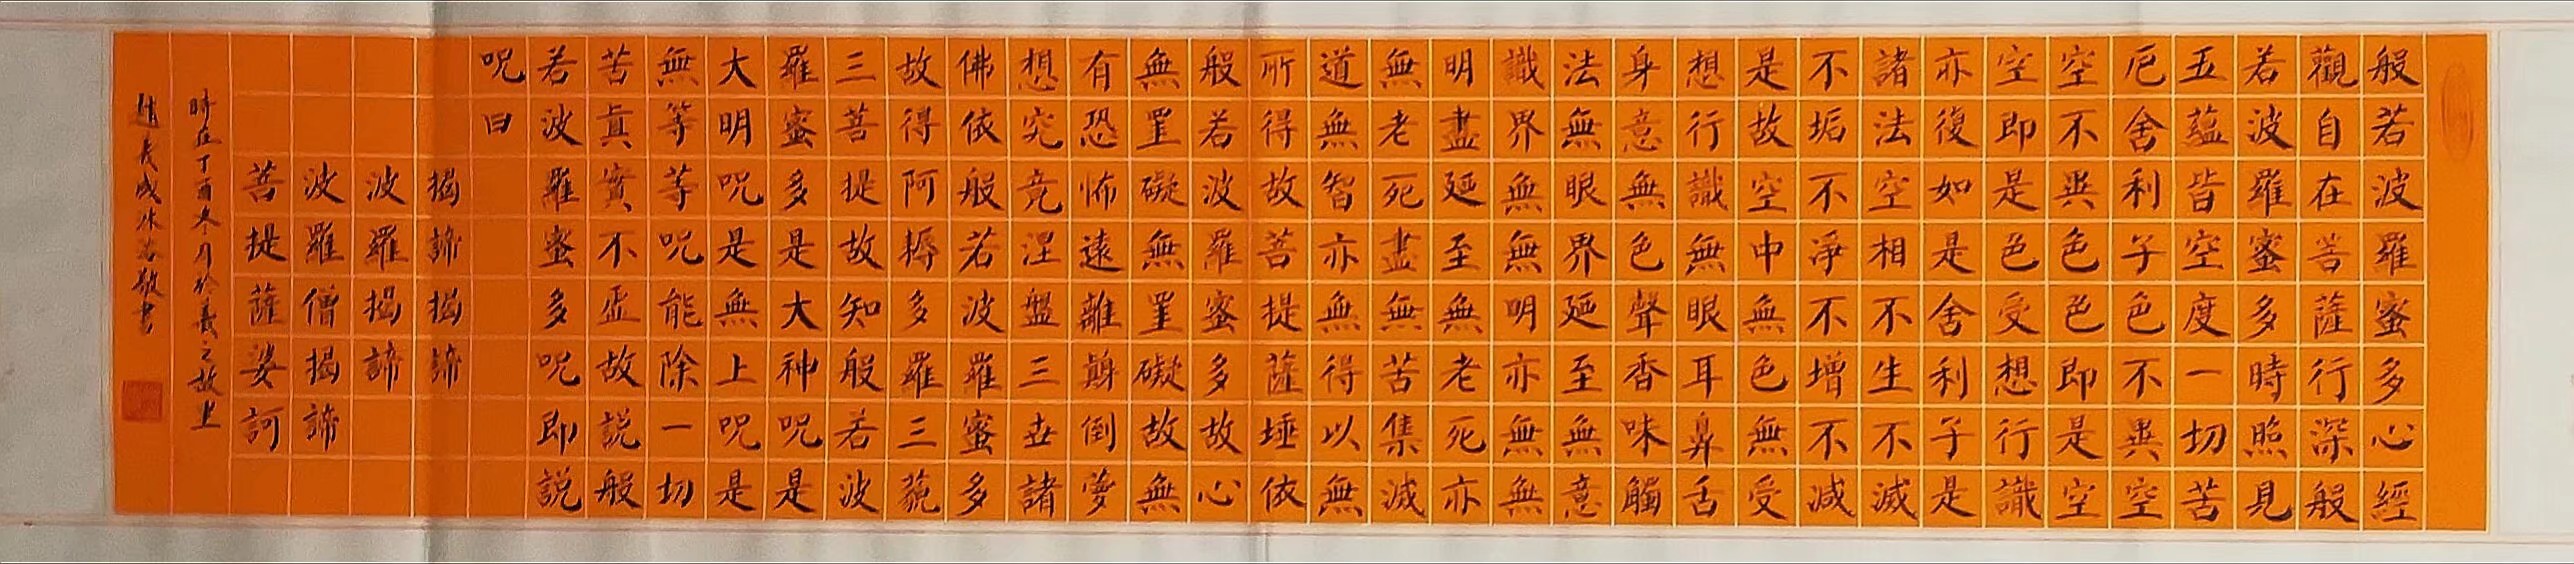 般若波羅蜜多心經
觀自在菩薩行深般
若波羅蜜多時照見
五蘊皆空度一切苦
厄舍利子色不異空
空不異色色即是空
空即是色受想行識
亦復如是舍利子是
諸法空相不生不滅
不垢不淨不增不減
是故空中無色無受
想行識無眼耳鼻舌
身意無色聲香味觸
法無眼界廼至無意
識界無無明亦無無
明盡廼至無老死亦
無老死盡無苦集滅
道無智亦無得以無
所得故菩提薩埵依
般若波羅蜜多故心
無罣礙無罣礙故無
有恐怖遠離顛倒夢
想究竟涅盤三世諸
佛依般若波羅蜜多
故得阿耨多羅三藐
三菩提故知般若波
羅蜜多是大神呪是
大明呪是無上呪是
無等等呪能除一切
苦真實不虛故說般
若波羅蜜多呪即說
呪曰
揭諦揭諦
波羅揭諦
波羅僧揭諦
菩提薩婆訶
時在丁酉冬月於羲之故上
成沐敬書